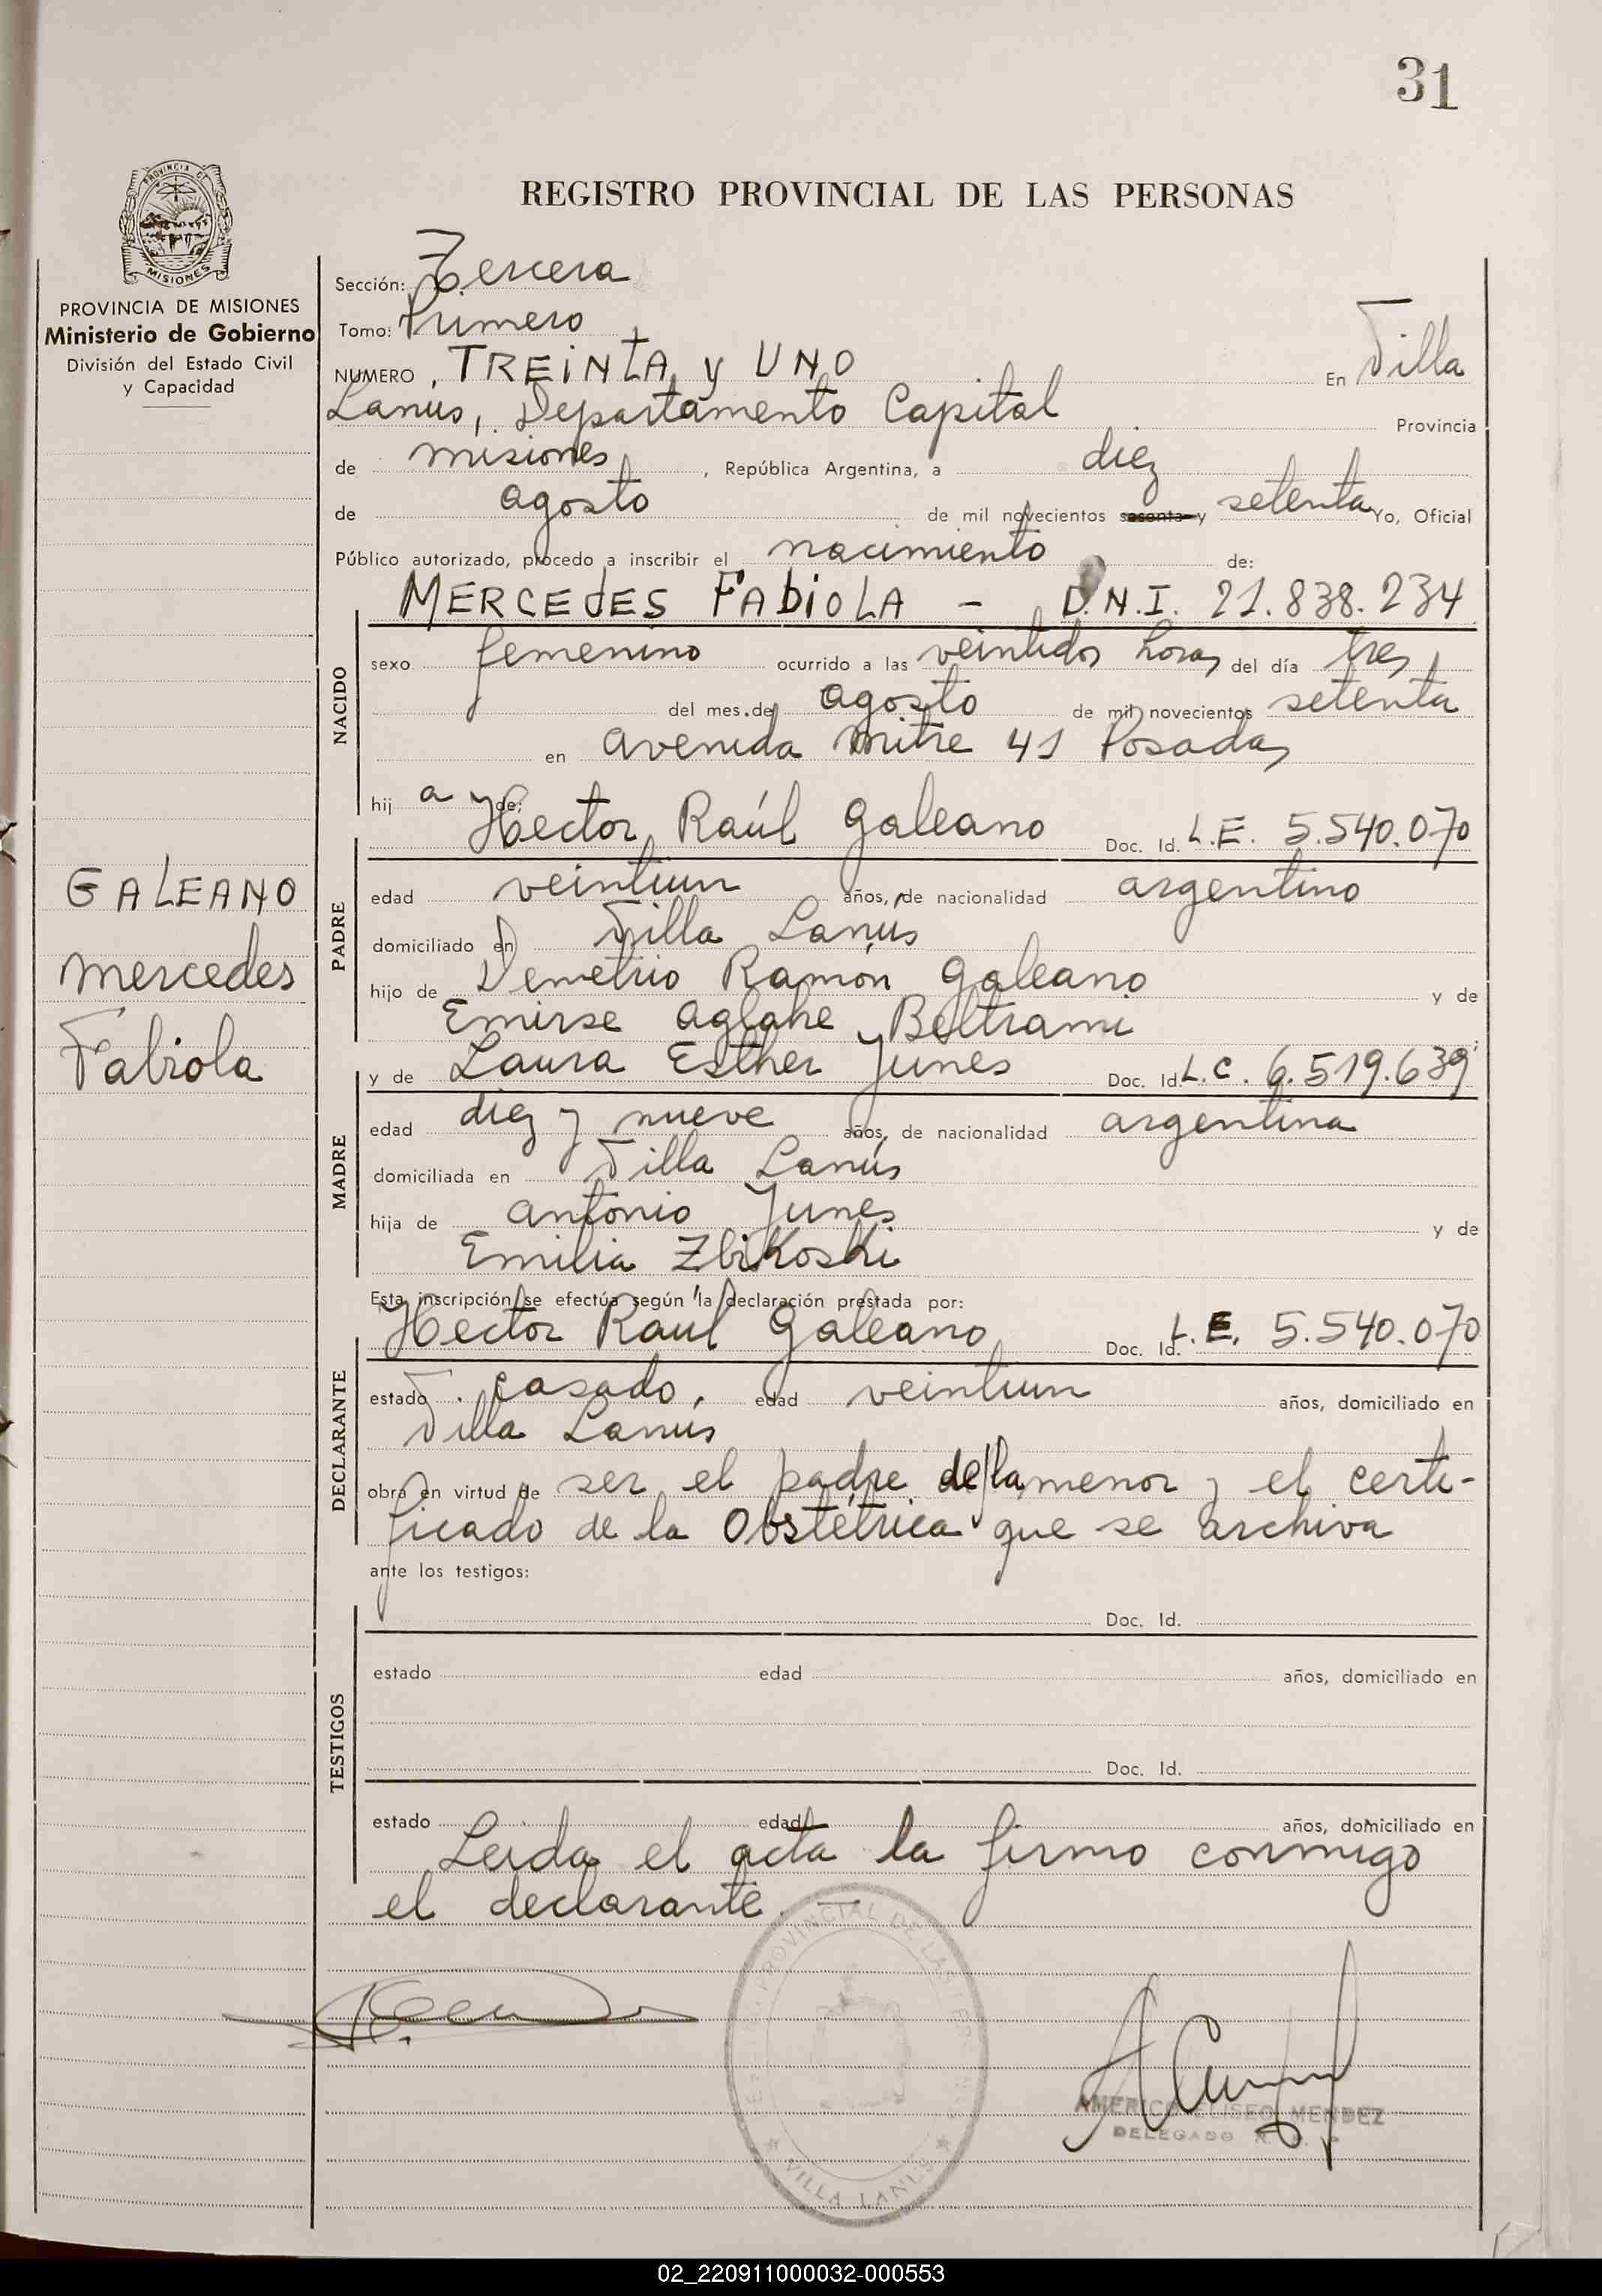 31
PROVINCIA DE
MISIONES
PROVINCIA DE MISIONES
Ministerio de Gobierno
División del Estado Civil
y Capacidad
GALEANO
Mercedes
Fabiola
REGISTRO PROVINCIAL DE LAS PERSONAS
Sección: Tercera
Tomo: Primero
NUMERO, TREINTA y UNO En Villa
Lanús, Departamento Capital Provincia
de misiones, República Argentina, a diez
de agosto de mil novecientos sesenta y setenta Yo, Oficial
Público autorizado, procedo a inscribir el nacimiento de:
MERCEDES FABIOLA - D.N.I. 21.838.234
NACIDO
sexo femenino ocurrido a las veintidos horas del día tres
del mes de agosto de mil novecientos setenta
en avenida Mitre 41 Posadas
hij a de:
Hector Raúl Galeano Doc. Id. L.E. 5.540.070
PADRE
edad veintiun años, de nacionalidad argentino
domiciliado en Villa Lanús
hijo de Demetrio Ramón Galeano y de
Emirse Aglahe Beltrami
y de Laura Esther Junes Doc. Id. L.C. 6.519.639
MADRE
edad diez y nueve años, de nacionalidad argentina
domiciliada en Villa Lanús
hija de Antonio Junes y de
Emilia Zbikoski
Esta inscripción se efectúa según la declaración prestada por:
Hector Raul Galeano Doc. Id. L.E. 5.540.070
DECLARANTE
estado casado, edad veintiun años, domiciliado en
Villa Lanús
obra en virtud de ser el padre de la menor y el certi-
ficado de la Obstétrica que se archiva
ante los testigos:
Doc. Id.
TESTIGOS
estado edad años, domiciliado en
Doc. Id.
estado edad años, domiciliado en
Leida el acta la firmo conmigo
el declarante.
REGISTRO PROVINCIAL DE LAS PERSONAS
VILLA LANUS
AMERICO ELISEO MENDEZ
DELEGADO
02_220911000032-000553